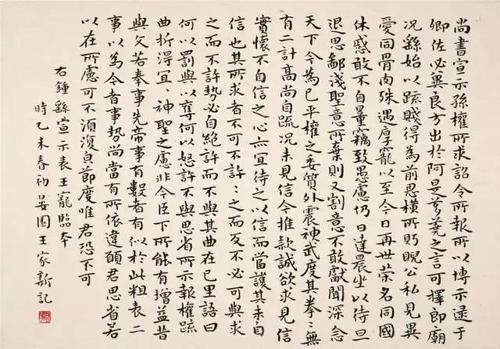 尚書宣示孫權所求詔令所報所以博示逮于
卿佐必冀良方出於阿是芻蕘之言可擇郎廟
況繇始以疏賤得為前恩橫所盻睨公私見異
愛同骨肉殊遇厚寵以至今日再世榮名同國
休慼敢不自量竊致愚慮仍日達晨坐以待旦
退思鄙淺聖意所棄則又割意不敢獻聞深念
天下今為已平權之委質外震神武度其拳〻無
有二計高尚自疏況未見信今推款誠欲求見信
實懷不自信之心亦宜待之以信而當護其未自
信也其所求者不可不許〻之而反不必可與求
之而不許勢必自絕許而不與其曲在己里語曰
何以罰與以奪何以怒許不與思省所示報權疏
曲折得宜神聖之慮非今臣下所能有增益昔
與文若奉事先帝事有數者有似於此粗表二
事以為今者事勢尚當有所依違願君思省若
以在所慮可不須復貞節度唯君恐不可
右鍾繇宣示表王寵臨本
時乙未春初晏園王家新記